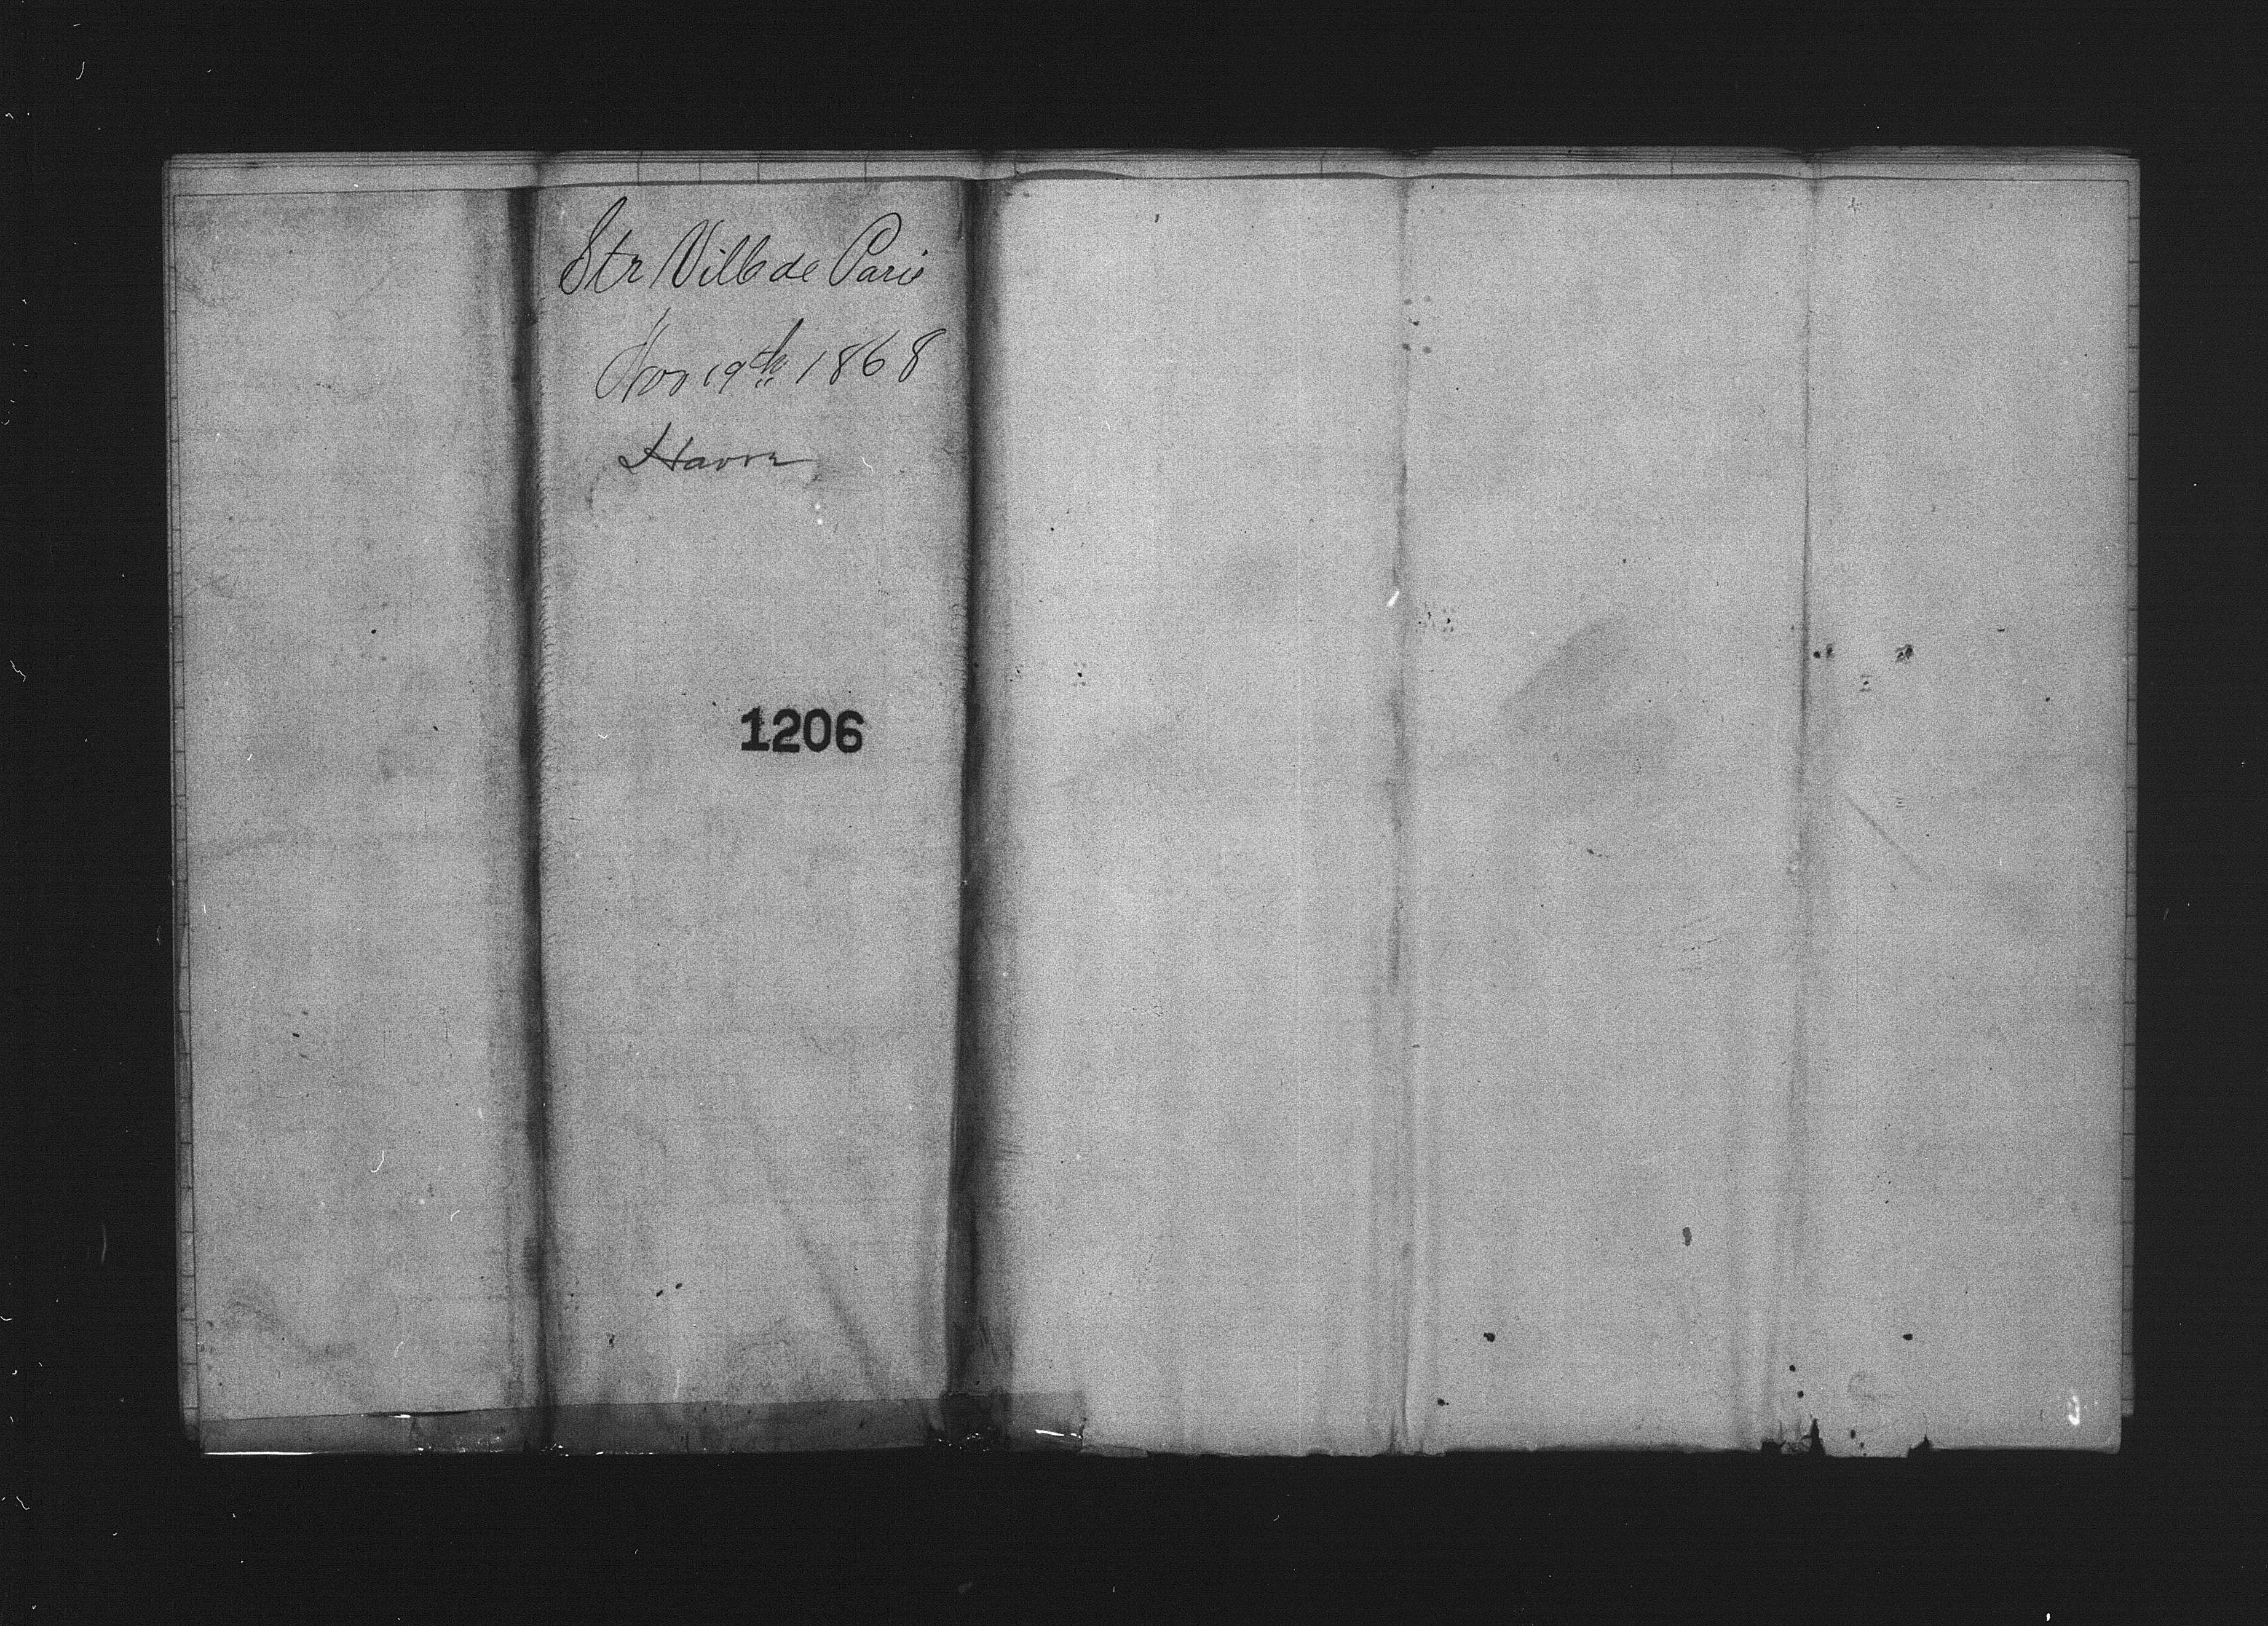 Str Ville de Paris
Nov 19th 1868
Havre
1206